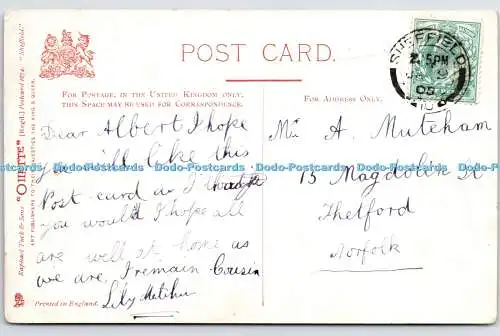 POST CARD.
FOR POSTAGE, IN THE UNITED KINGDOM ONLY,
THIS SPACE MAY BE USED FOR CORRESPONDENCE.
FOR ADDRESS ONLY.
SHEFFIELD
2.15PM
05
Dear Albert I hope
you will like this
Post card as I thought
you would I hope all
are well at home as
we are, I remain Cousin
Lily
A. Mutcham
13 Magdalen St
Thetford
Norfolk
Printed in England.
Raphael Tuck & Sons "OILETTE" [Regd.] Postcard "Sheffield."
ART PUBLISHERS TO THEIR MAJESTIES THE KING & QUEEN.
Dodo-Postcards Dodo-Postcards Dodo-Postcards Dodo-Postcards